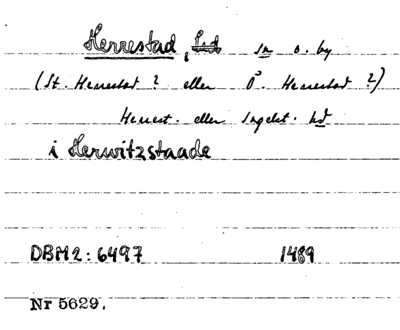 Herrestad, sn o. by
(St. Herrestad ? eller Ö. Herrestad ?)
Herrest. eller Ingelst. hd
i Herwitzstaade
DBM2: 6497 1489
Nr 5629.